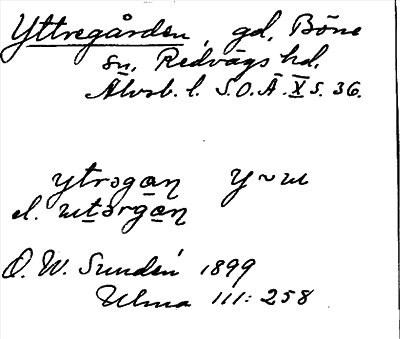 Yttregården, gd, Böne
sn, Redvägs hd.
Älvsb. l. S.O.Ä. X s. 36.
ytrəgaŋ y~ɯ
el. ɯtərgaŋ
O. W. Sundén 1899
Ulma 111:258